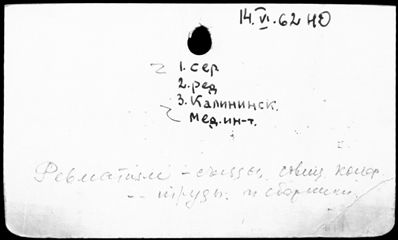 14.VI.62 НО
1. сер
2. ред
3. Калининск.
мед. ин-т.
Ревматизм - съезды,
-- труды и сборники